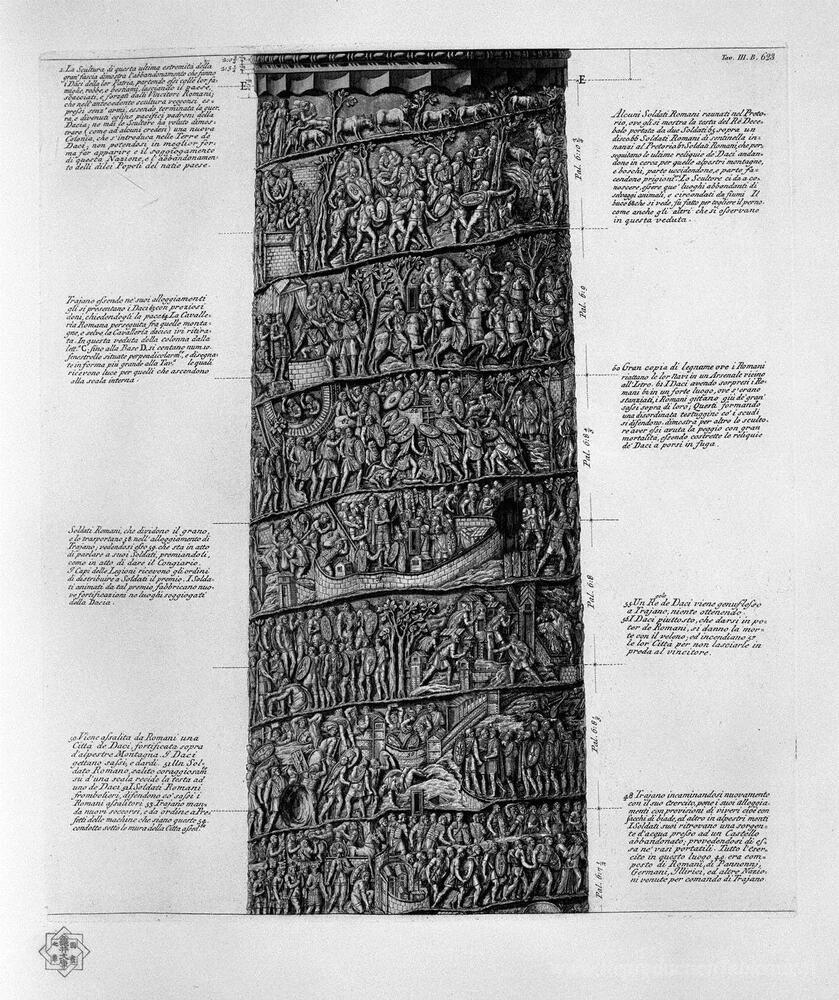 Tav. III. B. 623
2. La Scultura di questa ultima estremità della
gran' fascia dimostra l'abbandonamento che fanno
i Daci della lor Patria, portando essi colle lor fa-
miglie, robbe, e bestiami, lasciando il paese,
sbacciati, e forzati dalli Vincitori Romani;
che nell'antecedente scultura veggonsi es-
pressi senz'armi, essendo terminata la guer-
ra, e divenuti eglino pacifici padroni della
Dacia; ne mai lo Scultore ha voluto dimos-
trare (come ad alcuni credesi) una nuova
Colonia, che s'introduca nelle Terre de
Daci, non potendosi in meglior for-
ma far apparire e il soggiogamento
di questa Nazione, e l'abbandonamen-
to delli dilei Popoli del natio paese.
E
E
Alcuni Soldati Romani raunati nel Preto-
rio, ove gli si mostra la testa del Rè Dece-
balo portata da due Soldati 65 sopra un
disco 66 Soldati Romani di sentinella in-
nanzi al Pretorio 67 Soldati Romani, che per-
seguitano le ultime reliquie de' Daci andan-
done in cerca per quelle alpestri montagne,
e boschi, parte uccidendone, e parte fa-
cendone prigioni. Lo Scultore ci dà a co-
noscere, essere que' luoghi abbondanti di
selvaggi animali, e circondati da fiumi Il
buco 68 che si vede, fù fatto per togliere il perno.
come anche gli altri che si osservano
in questa veduta.
Pal. 6:10
Trajano essendo ne' suoi alloggiamenti
gli si presentano i Daci 63 con preziosi
doni, chiedendogli la pace 64 La Cavalle-
ria Romana perseguita fra quelle monta-
gne, e selve la Cavalleria dacica ivi ritira-
ta. In questa veduta della colonna dalla
lett.ᵃ C. fino alla Base D. si contano num. 10.
finestrelle situate perpendicolarm.ᵉ, e disegna-
te in forma più grande alla Tav.ᵃ le quali
ricevono luce per quelli che ascendono
alla scala interna.
Pal. 6:9
60 Gran copia di legname ove i Romani
riattano le lor Navi in un Arsenale vicino
all'Istro. 61 I Daci avendo sorpresi i Ro-
mani 62 in un forte luogo, ove s'erano
stanziati, i Romani gettano giù de' gran'
sassi sopra di loro; Questi formando
una disordinata testuggine co' i scudi
si difendono. dimostra per altro lo sculto-
re aver essi avuta la peggio con gran
mortalità, essendo costrette le reliquie
de' Daci a porsi in fuga.
Pal. 6:8
Soldati Romani, che dividono il grano,
e lo trasportano 58 nell'alloggiamento di
Trajano; vedendosi esso 59 che sta in atto
di parlare a suoi Soldati, premiandoli,
come in atto di dare il Congiario.
I Capi delle Legioni ricevono gli ordini
di distribuire a Soldati il premio. I Solda-
ti animati da tal premio fabbricano nuo-
ve fortificazioni ne luoghi soggiogati
della Dacia.
Pal. 6:8
55 Un Re de Daci viene genuflesso
a Trajano, niente ottenendo.
56 I Daci piuttosto, che darsi in po-
ter de Romani, si danno la mor-
te con il veleno; ed incendiano 57
le lor Città per non lasciarle in
preda al vincitore.
Pal. 6:8½
50 Viene assalita da Romani una
Città de Daci, fortificata sopra
d'alpestre Montagna I Daci
gettano sassi, e dardi. 51 Un Sol-
dato Romano, salito coraggiosam.ᵗᵉ
su d'una scala recide la testa ad
uno de Daci. 52 I Soldati Romani
frombolieri, difendono co' sassi i
Romani assalitori. 53 Trajano man-
da nuovi soccorsi, e dà ordine a Pre-
fetti delle machine che siano queste 54
condotte sotto le mura della Città assed.ᵗᵃ
48 Trajano incaminandosi nuovamente
con il suo esercito, pone i suoi alloggia-
menti con provisioni di viveri cioè con
sacchi di biade, ed altro in alpestri monti
I Soldati suoi ritrovano una sorgen-
te d'acqua presso ad un Castello
abbandonato; provedendosi di es-
sa ne' vasi portatili. Tutto l'eser-
cito in questo luogo 49. era com-
posto di Romani, di Pannonnj,
Germani, Illirici, ed altre Nazio-
ni venute per comando di Trajano.
Pal. 6:7½